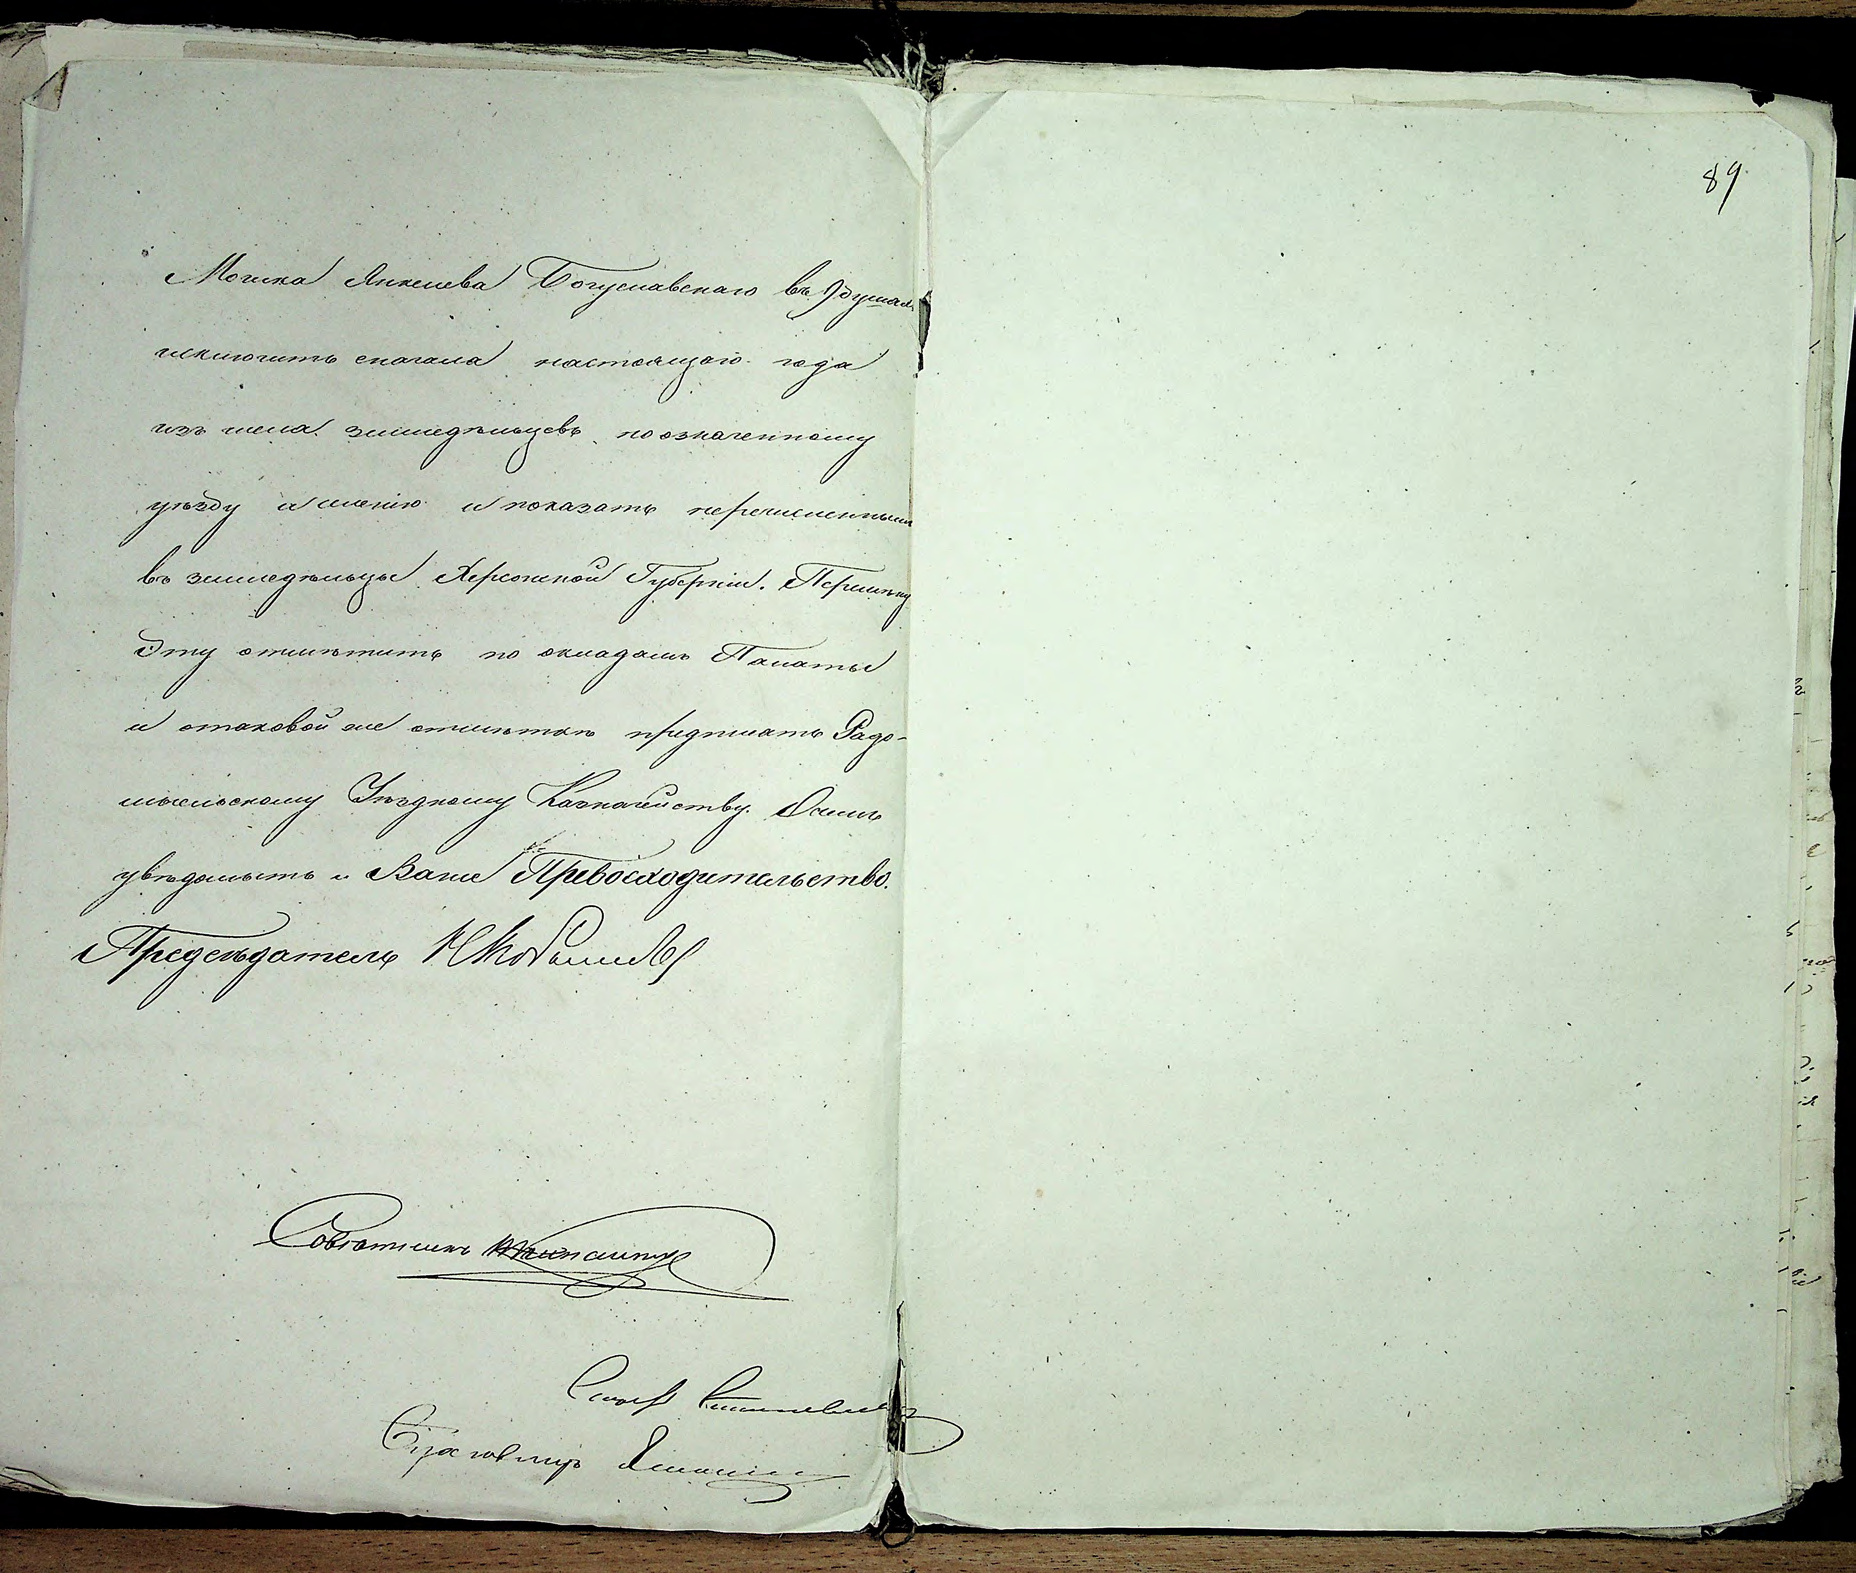 Мошка Янкелева Богуславскаго въ 9 душахъ
исключить сначала настоящаго года
изъ числа земледѣльцевъ по означенному
уѣзду и имѣнію и показать перечисленными
въ земледѣльцы Херсонской Губерніи. Перемѣну
эту отмѣтить по окладамъ Палаты
и о таковой же отмѣткѣ предписать Радо-
мысльскому Уѣздному Казначейству. О чемъ
увѣдомить и Ваше Превосходительство.
Предсѣдатель
Совѣтникъ
89